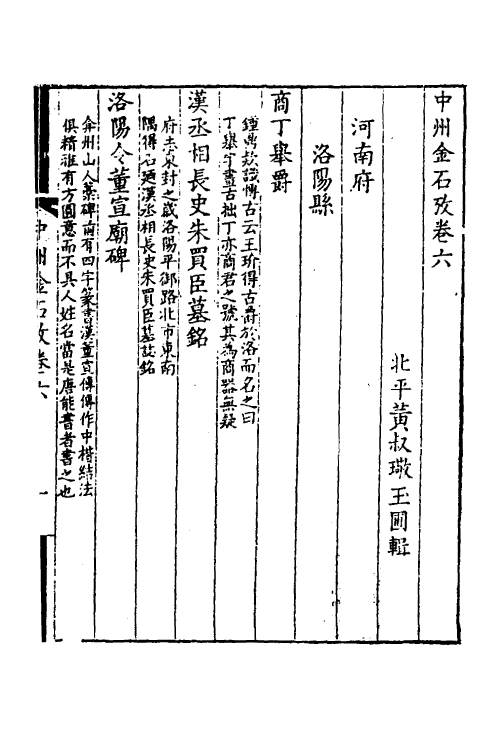 中州金石攷卷六
北平黃叔璥玉圃輯
河南府
洛陽縣
商丁舉爵
鍾鼎欵識博古云王玠得古爵於洛而名之曰
丁舉字畫古拙丁亦商君之號其為商器無疑
漢丞相長史朱買臣墓銘
府志東封之歲洛陽平御路北市東南
隅得石題漢丞相長史朱買臣墓誌銘
洛陽令董宣廟碑
弇州山人藁碑前有四字篆書漢董宣傳傳作中楷結法
俱精雅有方圓意而不具人姓名當是唐能書者書之也
中州金石攷卷六
一